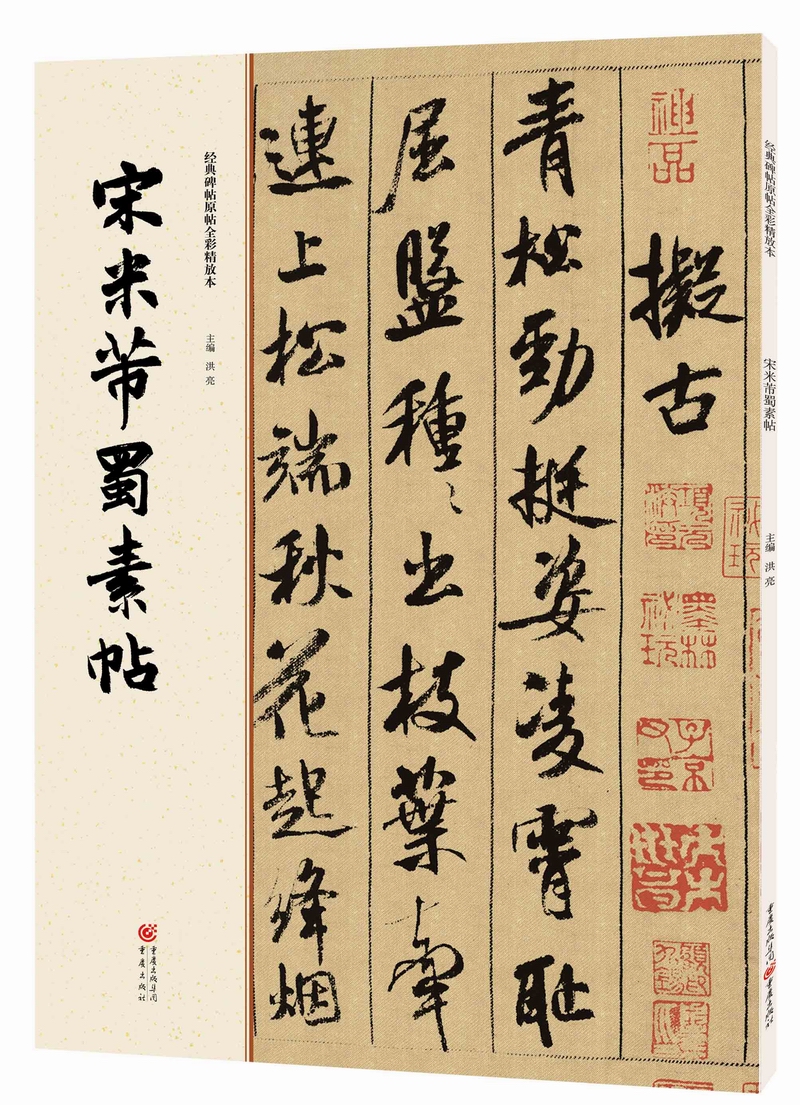 经典碑帖原帖全彩精放本
宋米芾蜀素帖
主编 洪亮
重庆出版集团
重庆出版社
神品
擬古
項元汴印
墨林祕玩
青松勁挺姿凌霄耻
屈盤種〻出枝葉牽
連上松端秋花起絳烟
经典碑帖原帖全彩精放本
宋米芾蜀素帖
主编 洪亮
重庆出版集团
重庆出版社